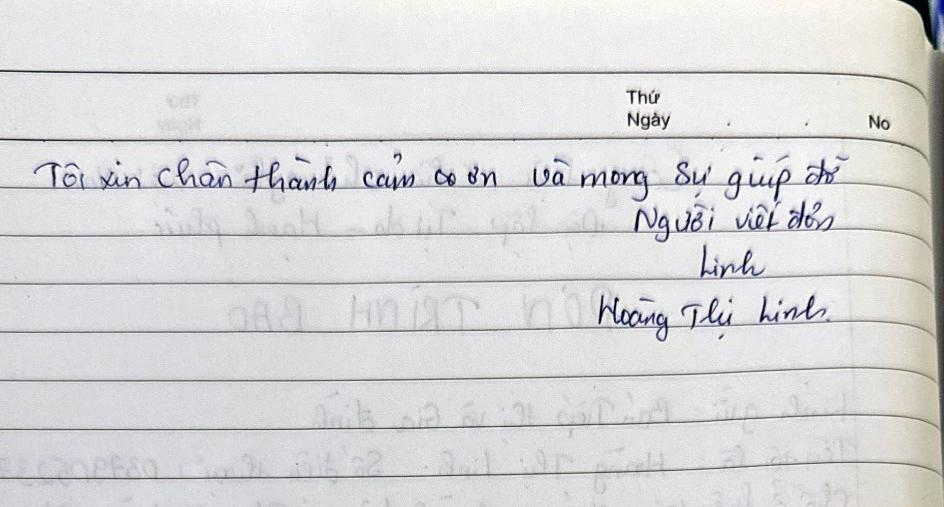 Thứ
Ngày . . No
Tôi xin chân thành cảm ơn và mong sự giúp đỡ
Người viết đơn
Linh
Hoàng Thị Linh.